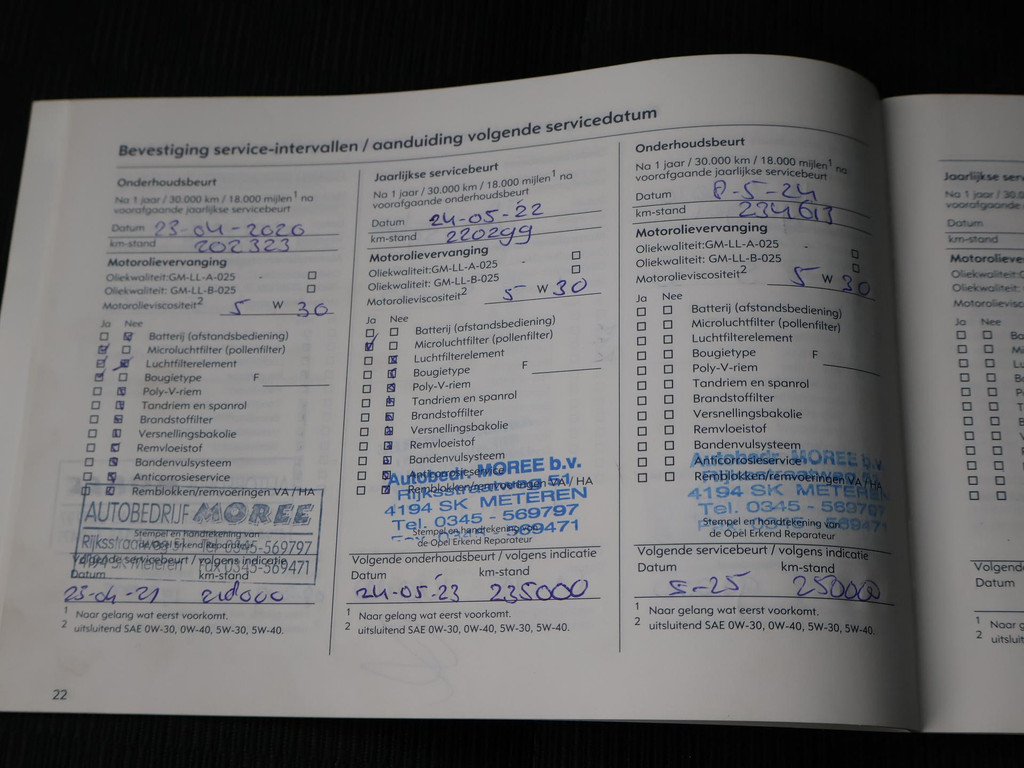 Bevestiging service-intervallen / aanduiding volgende servicedatum
Onderhoudsbeurt
Na 1 jaar / 30.000 km / 18.000 mijlen¹ na
voorafgaande jaarlijkse servicebeurt
Datum 23-04-2020
km-stand 202323
Motorolievervanging
Oliekwaliteit:GM-LL-A-025
Oliekwaliteit: GM-LL-B-025
Motorolieviscositeit² 5 W 30
Ja Nee
Batterij (afstandsbediening)
Microluchtfilter (pollenfilter)
Luchtfilterelement
Bougietype F
Poly-V-riem
Tandriem en spanrol
Brandstoffilter
Versnellingsbakolie
Remvloeistof
Bandenvulsysteem
Anticorrosieservice
Remblokken/remvoeringen VA / HA
AUTOBEDRIJF MOREE
Rijksstraatweg 51 Tel. 0345-569797
4194 SK Meteren Fax 0345-569471
Volgende servicebeurt / volgens indicatie
Datum km-stand
23-04-21 210000
¹ Naar gelang wat eerst voorkomt.
² uitsluitend SAE 0W-30, 0W-40, 5W-30, 5W-40.
22
Jaarlijkse servicebeurt
Na 1 jaar / 30.000 km / 18.000 mijlen¹ na
voorafgaande onderhoudsbeurt
Datum 24-05-22
km-stand 220299
Motorolievervanging
Oliekwaliteit:GM-LL-A-025
Oliekwaliteit: GM-LL-B-025
Motorolieviscositeit² 5 W 30
Ja Nee
Batterij (afstandsbediening)
Microluchtfilter (pollenfilter)
Luchtfilterelement
Bougietype F
Poly-V-riem
Tandriem en spanrol
Brandstoffilter
Versnellingsbakolie
Remvloeistof
Bandenvulsysteem
Anticorrosieservice
Remblokken/remvoeringen VA / HA
Autobedr. MOREE b.v.
4194 SK METEREN
Tel. 0345 - 569797
569471
Stempel en handtekening van
de Opel Erkend Reparateur
Volgende onderhoudsbeurt / volgens indicatie
Datum km-stand
24-05-23 235000
¹ Naar gelang wat eerst voorkomt.
² uitsluitend SAE 0W-30, 0W-40, 5W-30, 5W-40.
Onderhoudsbeurt
Na 1 jaar / 30.000 km / 18.000 mijlen¹ na
voorafgaande jaarlijkse servicebeurt
Datum 8-5-24
km-stand 234613
Motorolievervanging
Oliekwaliteit:GM-LL-A-025
Oliekwaliteit: GM-LL-B-025
Motorolieviscositeit² 5 W 30
Ja Nee
Batterij (afstandsbediening)
Microluchtfilter (pollenfilter)
Luchtfilterelement
Bougietype F
Poly-V-riem
Tandriem en spanrol
Brandstoffilter
Versnellingsbakolie
Remvloeistof
Bandenvulsysteem
Anticorrosieservice
Remblokken/remvoeringen VA / HA
Autobedr. MOREE b.v.
4194 SK METEREN
Tel. 0345 - 569797
569471
Stempel en handtekening van
de Opel Erkend Reparateur
Volgende servicebeurt / volgens indicatie
Datum km-stand
5-25 250000
¹ Naar gelang wat eerst voorkomt.
² uitsluitend SAE 0W-30, 0W-40, 5W-30, 5W-40.
Jaarlijkse se
Na 1 jaar / 30
voorafgaande
Datum
km-stand
Motorolieve
Oliekwaliteit
Oliekwaliteit:
Motorolievisc
Ja Nee
Volgend
Datum
¹ Naar g
² uitsluit